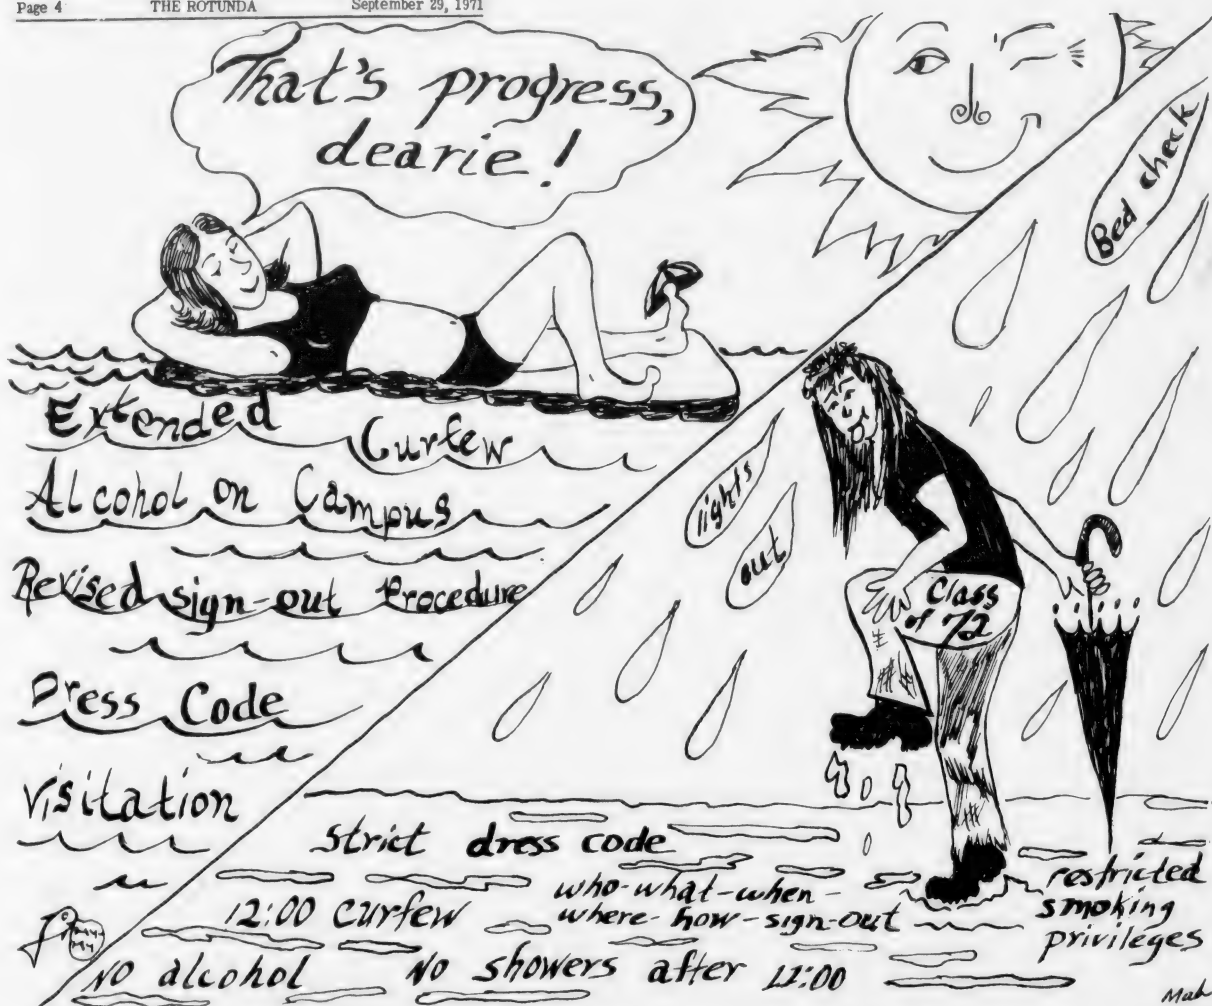 Page 4 THE ROTUNDA September 29, 1971
That's progress,
dearie!
Extended Curfew
Alcohol on Campus
Revised sign-out Procedure
Dress Code
Visitation
Bed check
lights
out
Class
of '72
strict dress code
12:00 curfew
who-what-when-
where-how-sign-out
restricted
smoking
privileges
NO alcohol
NO showers after 11:00